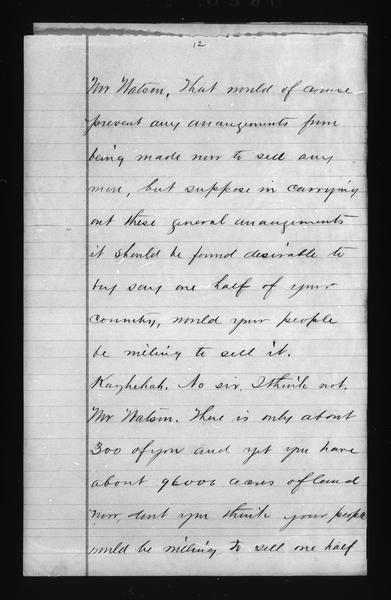 12
Mr Watson, That would of course
prevent any arrangements from
being made now to sell any
more, but suppose in carrying
out these general arrangements
it should be found desirable to
buy say one half of your
country, would your people
be willing to sell it.
Kazhekah. No sir, I think not.
Mr Watson. There is only about
300 of you and yet you have
about 96000 acres of land
now, dont you think your people
would be willing to sell one half